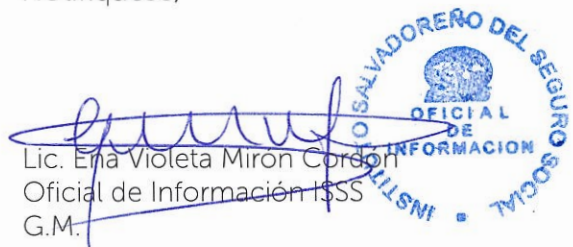 Lic. Ena Violeta Mirón Cordón
Oficial de Información ISSS
G.M.
INSTITUTO SALVADOREÑO DEL SEGURO SOCIAL
OFICIAL
DE
INFORMACION